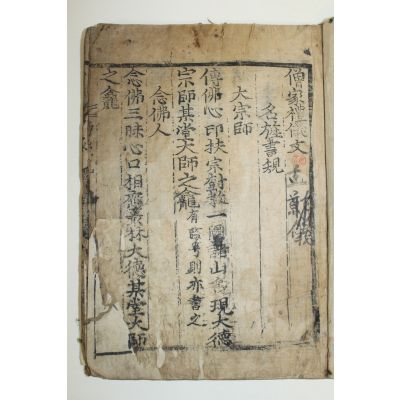 僧家禮儀文
名旌書規
大宗師
傳佛心印扶宗樹教一國諸山
現大德
宗師某堂大師之龕有職啣則亦書之
念佛人
念佛三昧心口相應叢林大德某堂大師
之龕